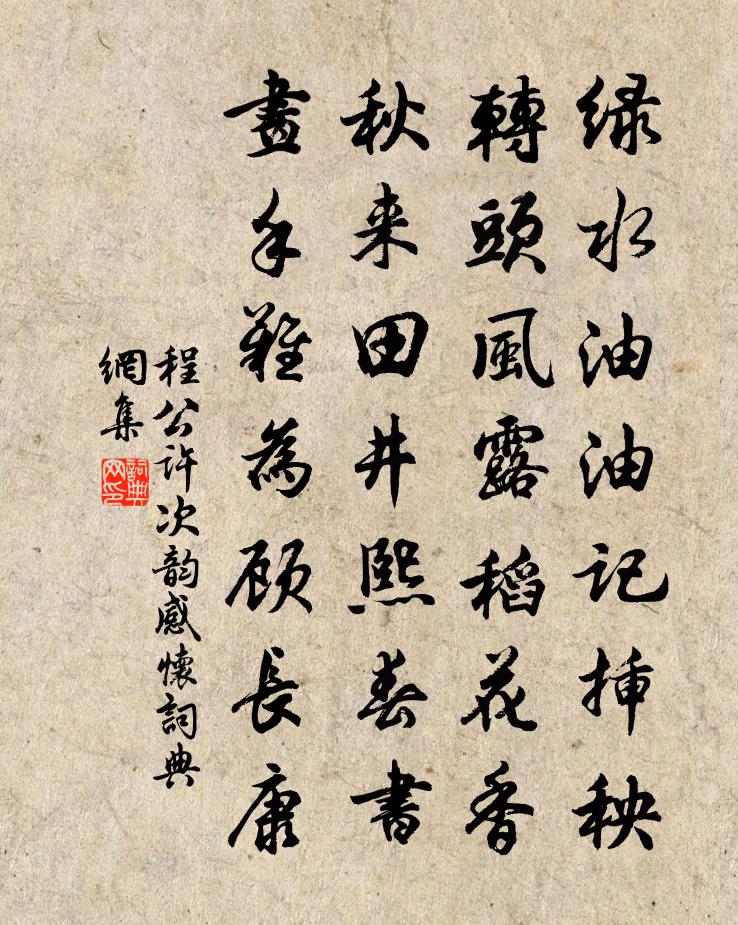 绿水油油记挿秧
轉頭風露稻花香
秋来田井熙春書
畫手難為顾長康
程公许次韵感懷詞典
網集
詞典
网印